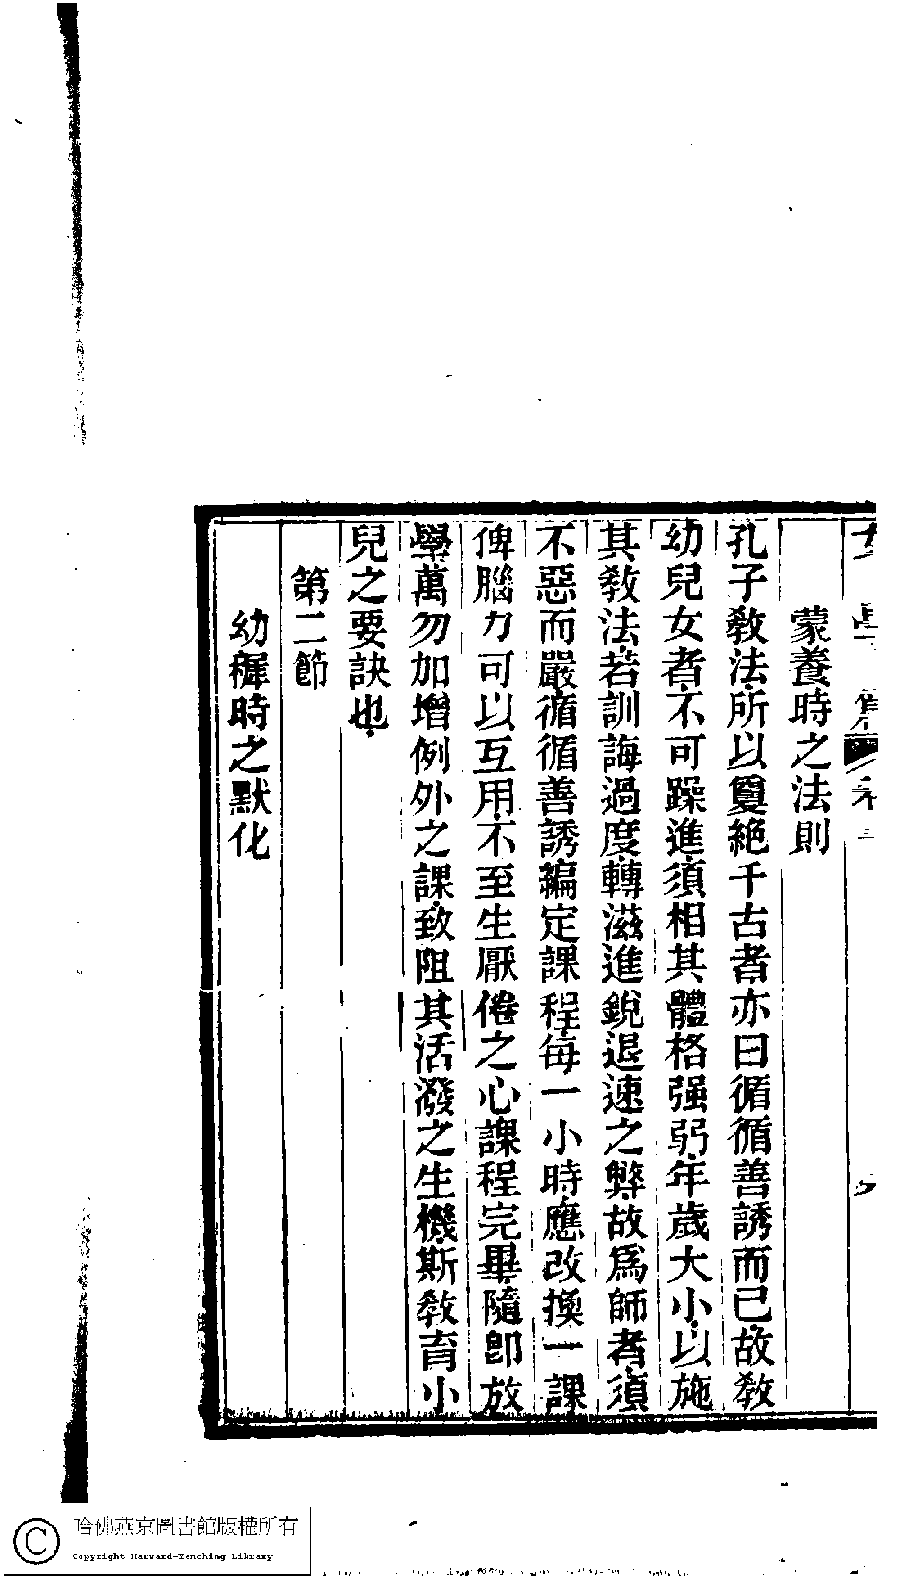 蒙養時之法則
孔子敎法所以敻絶千古者亦曰循循善誘而已故敎
幼兒女者不可躁進須相其體格强弱年歲大小以施
其敎法若訓誨過度轉滋進銳退速之弊故爲師者須
不惡而嚴循循善誘編定課程每一小時應改換一課
俾腦力可以互用不至生厭倦之心課程完畢隨卽放
學萬勿加增例外之課致阻其活潑之生機斯敎育小
兒之要訣也
第二節
幼穉時之默化
哈佛燕京圖書館版權所有
Copyright Harvard-Yenching Library